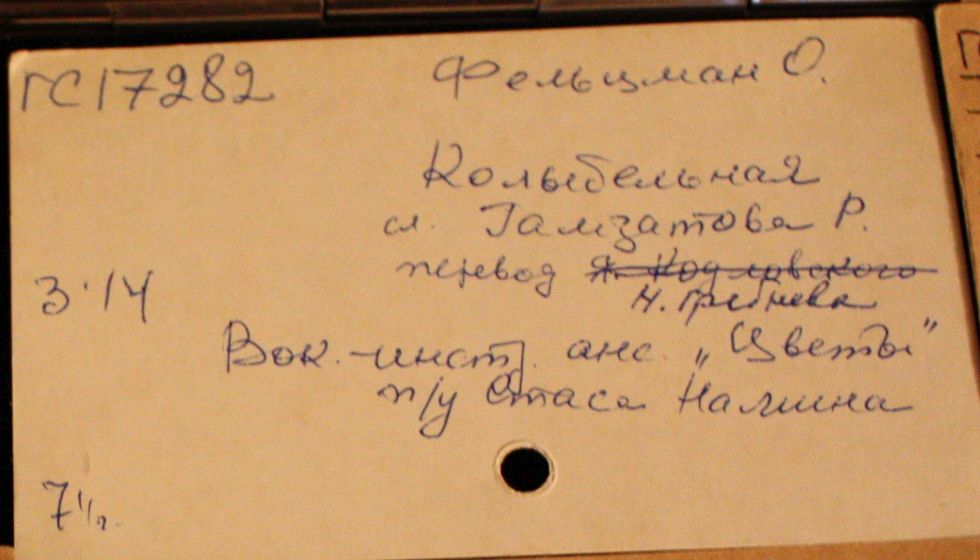 ГС17282
Фельцман О.
Колыбельная
сл. Гамзатова Р.
перевод Я. Козловского
Н. Гребнева
3'14
Вок.-инстр. анс. „Цветы"
п/у Стаса Намина
7½